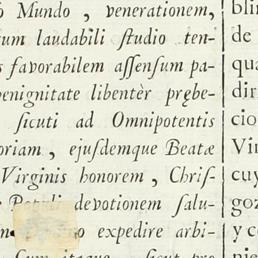 ò Mundo, venerationem,
um laudabili ſtudio ten-
s favorabilem aſſenſum pa-
benignitate libentèr prębe-
ſicuti ad Omnipotentis
oriam, ejuſdemque Beatæ
Virginis honorem, Chriſ-
devotionem ſalu-
o expedire arbi-
blin
de
qua
dir
cio
Vir
cuy
goz
y co